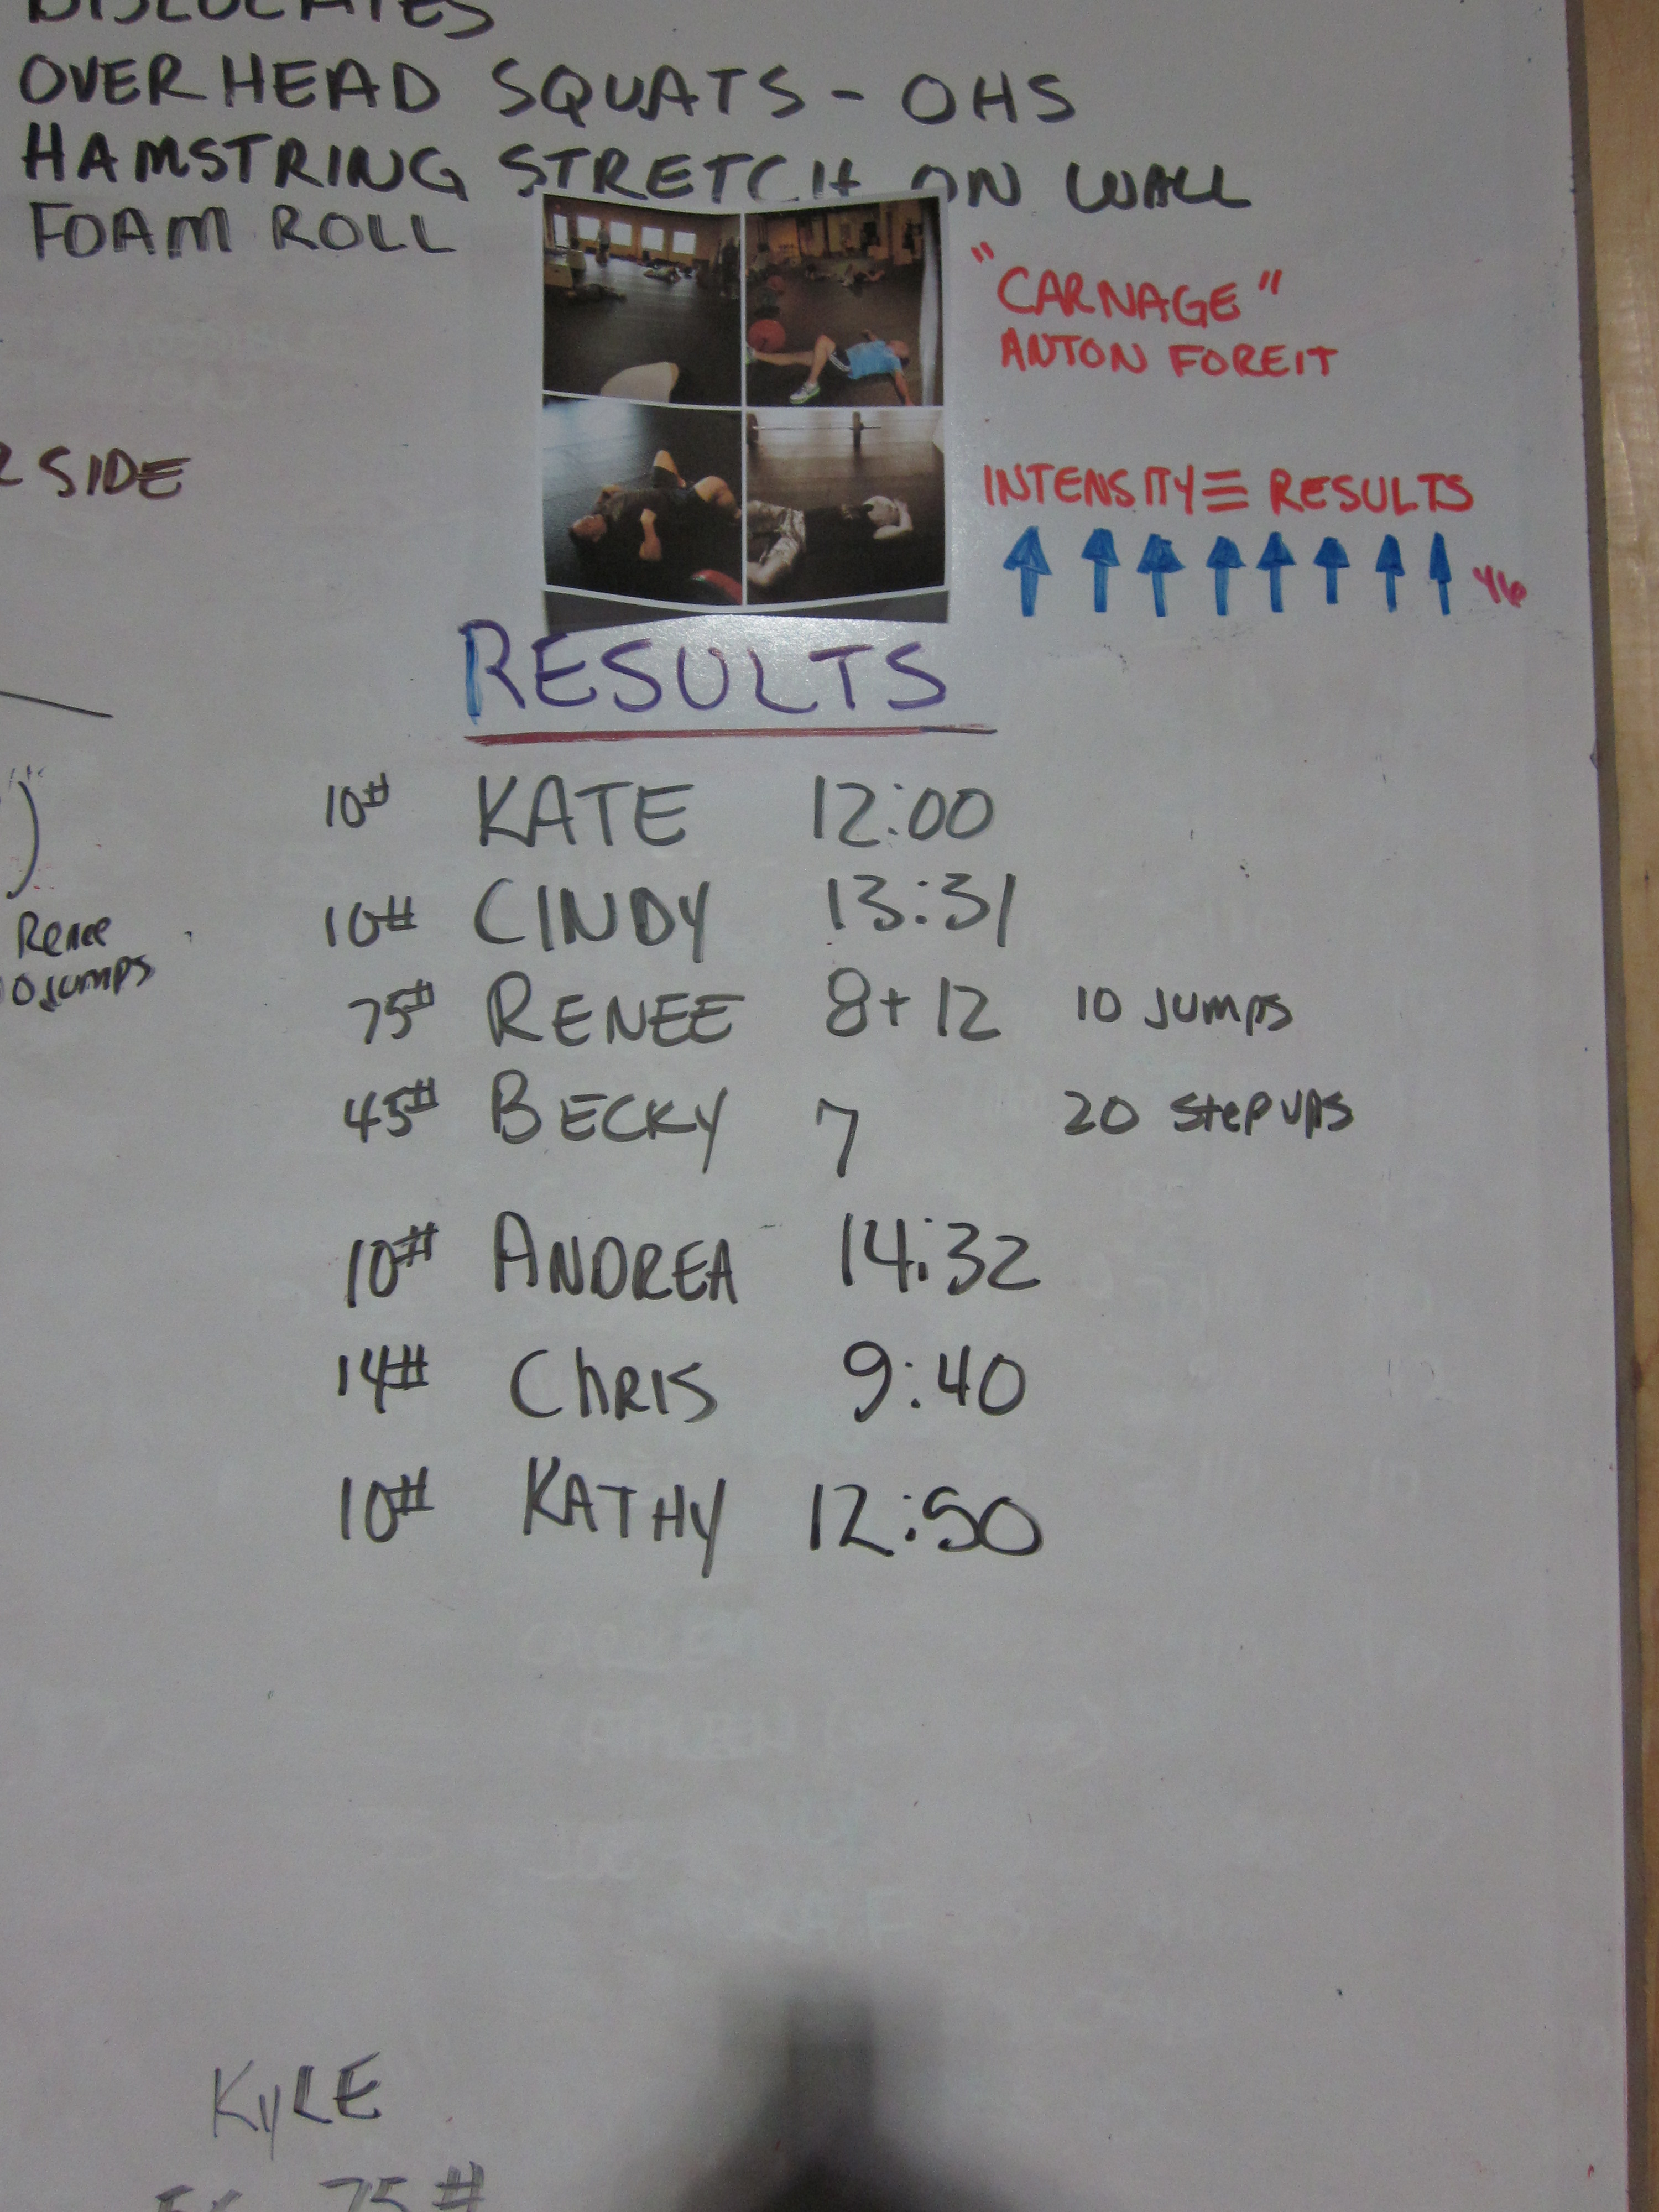 DISLOCATES
OVERHEAD SQUATS - OHS
HAMSTRING STRETCH ON WALL
FOAM ROLL
"CARNAGE"
ANTON FOREIT
SIDE
INTENSITY ≡ RESULTS
RESULTS
10# KATE 12:00
10# CINDY 13:31
Renee
0 Jumps
75# RENEE 8+12 10 Jumps
45# BECKY 7 20 Step ups
10# ANDREA 14:32
14# ChRIS 9:40
10# KATHY 12:50
KyLE
75#